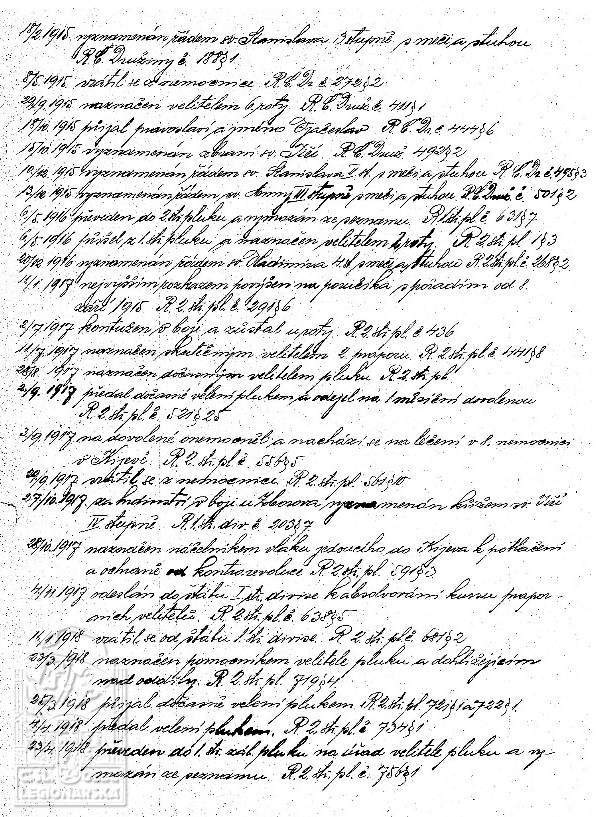 18/2 1915 vyznamenán řádem sv. Stanislava 3 stupně s meči a stuhou
R. Č. Družiny č. 188§1
8/5 1915 vrátil se z nemocnice R. Č. Dr. č. 272§2
23/9 1915 naznačen velitelem 6. roty. R. Č. Druž. č. 411§1
1915 přijal pravoslaví a jméno Vjačeslav R. Č. Dr. č. 444§6
1915 vyznamenán zbraní sv. Jiří. R. Č. Druž. 492§2
1915 vyznamenán řádem sv. Stanislava 2 st. s meči a stuhou R. Č. Dr. č. 495§3
13/12 1915 vyznamenán řádem sv. Anny III stupně s meči a stuhou. R. Č. Druž. č. 501§2
1916 převeden do 2. stř. pluku a vymazán ze seznamu. R. 1. stř. pl. č. 63§7
1916 přišel z 1. stř. pluku a naznačen velitelem roty. R. 2. stř. pl. 1§3
20/12 1916 vyznamenán řádem sv. Vladimíra 4. st. s meči a stuhou R. 2. stř. pl. č. 268§2
1917 nejvyšším rozkazem povýšen na poručíka s pořadím od 8.
září 1915 R. 2. stř. pl. č. 291§6
2/7 1917 kontužen v boji a zůstal u roty. R. 2. stř. pl. č. 436
11/7 1917 naznačen skutečným velitelem 2 praporu. R. 2. stř. pl. č. 441§8
1917 naznačen dočasným velitelem pluku R. 2. stř. pl.
2/9. 1917 předal dočasně velení plukem a odejel na 1 měsíční dovolenou
R. 2. stř. pl. č. 521§25
3/9 1917 na dovolené onemocněl a nachází se na léčení v 8. nemocnici
v Kijevě. R. 2. stř. pl. č. 556§5
1917 vrátil se z nemocnice. R. 2. stř. pl. 561§10
27/10 1917 za hrdinství v boji u Zborova vyznamenán křížem sv. Jiří
IV. stupně. R. 1. stř. div. č. 203§7
28/10 1917 naznačen náčelníkem vlaku jdoucího do Kijeva k potlačení
a ochraně od kontrarevoluce R. 2 stř. pl. 591§3
1917 odeslán do štábu I. stř. divise k absolvování kursu prapor-
ních velitelů. R. 2. stř. pl. č. 638§5
11/1 1918 vrátil se od štábu 1. stř. divise. R. 2. stř. pl. č. 681§2
23/3. 1918 naznačen pomocníkem velitele pluku a dohlížejícím
nad oddíly. R. 2. stř. pl. 719§4
25/3 1918 přijal dočasně velení plukem. R. 2. stř. pl. 721§1 a 722§1
1918 předal velení plukem. R. 2. stř. pl. č. 734§1
23/4 1918 převeden do 1. stř. zál. pluku na úřad velitele pluku a vy-
mazán ze seznamu. R. 2. stř. pl. č. 756§1
LEGIONÁŘSKÁ